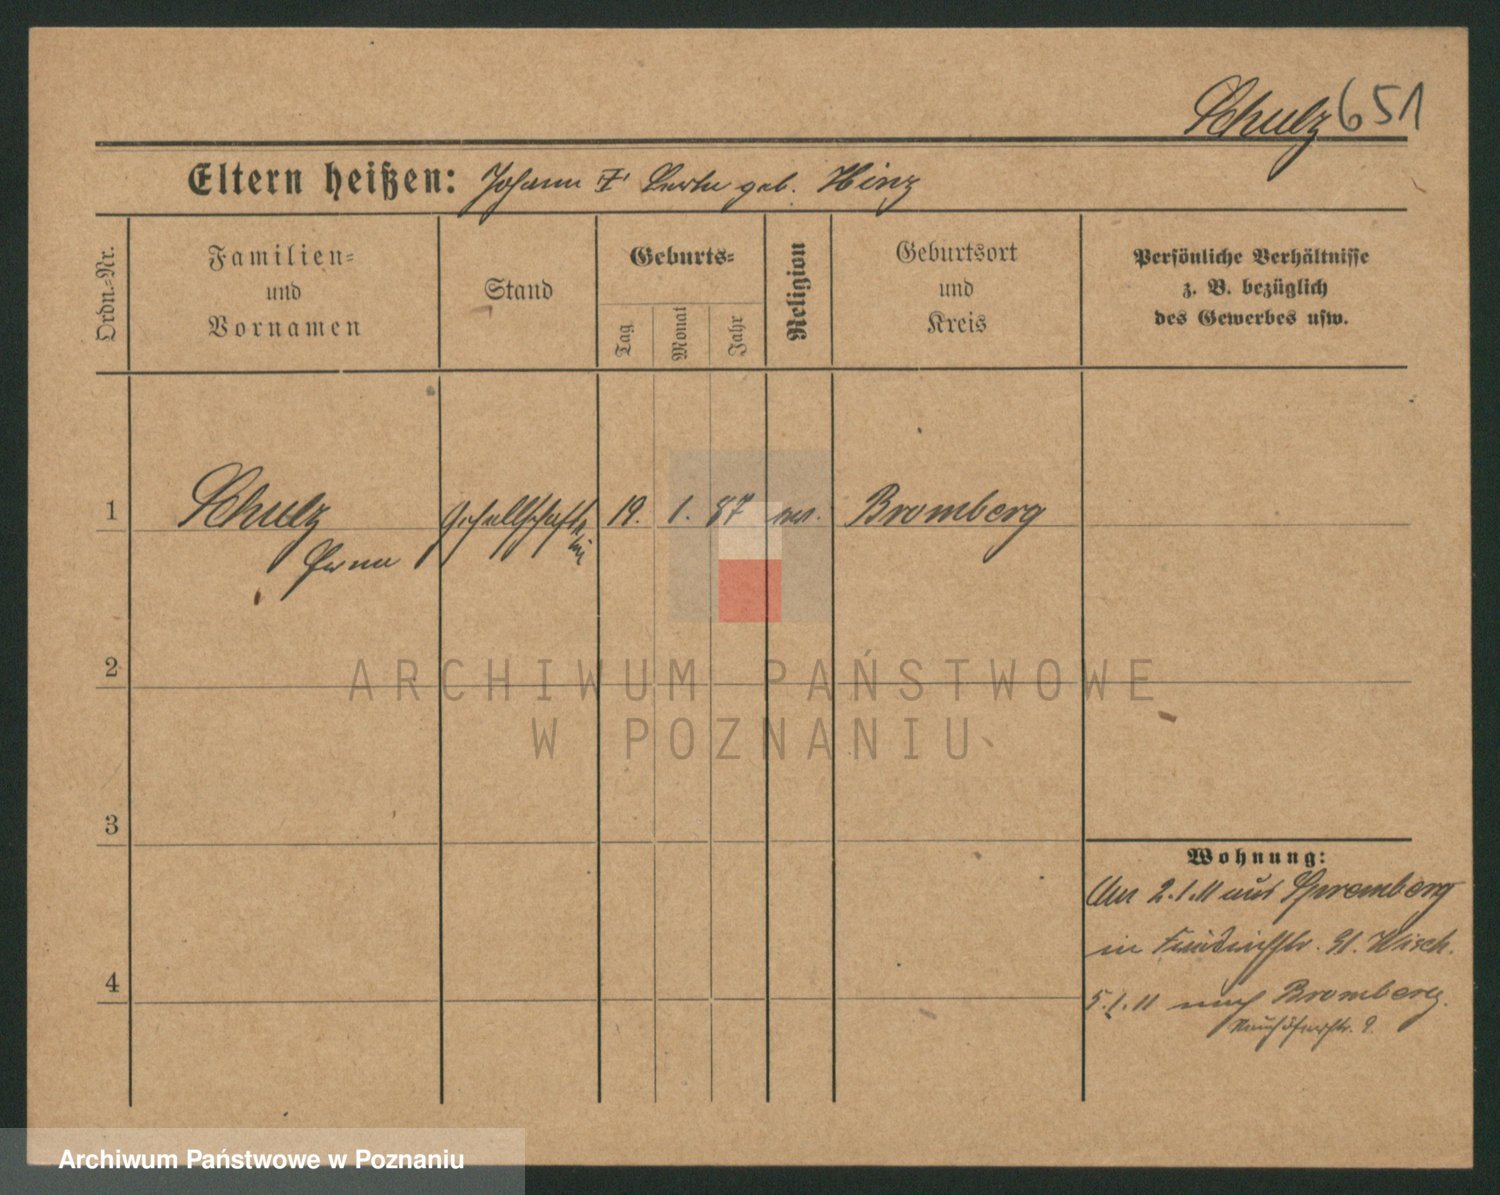 Schulz 651
Eltern heißen: Johann geb. Hinz
Ordn.-Nr.
Familien-
und
Vornamen
Stand
Geburts-
Tag
Monat
Jahr
Religion
Geburtsort
und
Kreis
Persönliche Verhältnisse
z. B. bezüglich
des Gewerbes usw.
1 Schulz Gesellschafte 19. 1. 87 ev. Bromberg
rin
2
ARCHIWUM PAŃSTWOWE
W POZNANIU
3
Wohnung:
2.1.11 aus Spremberg
in
4
5.1.11 nach Bromberg.
Archiwum Państwowe w Poznaniu